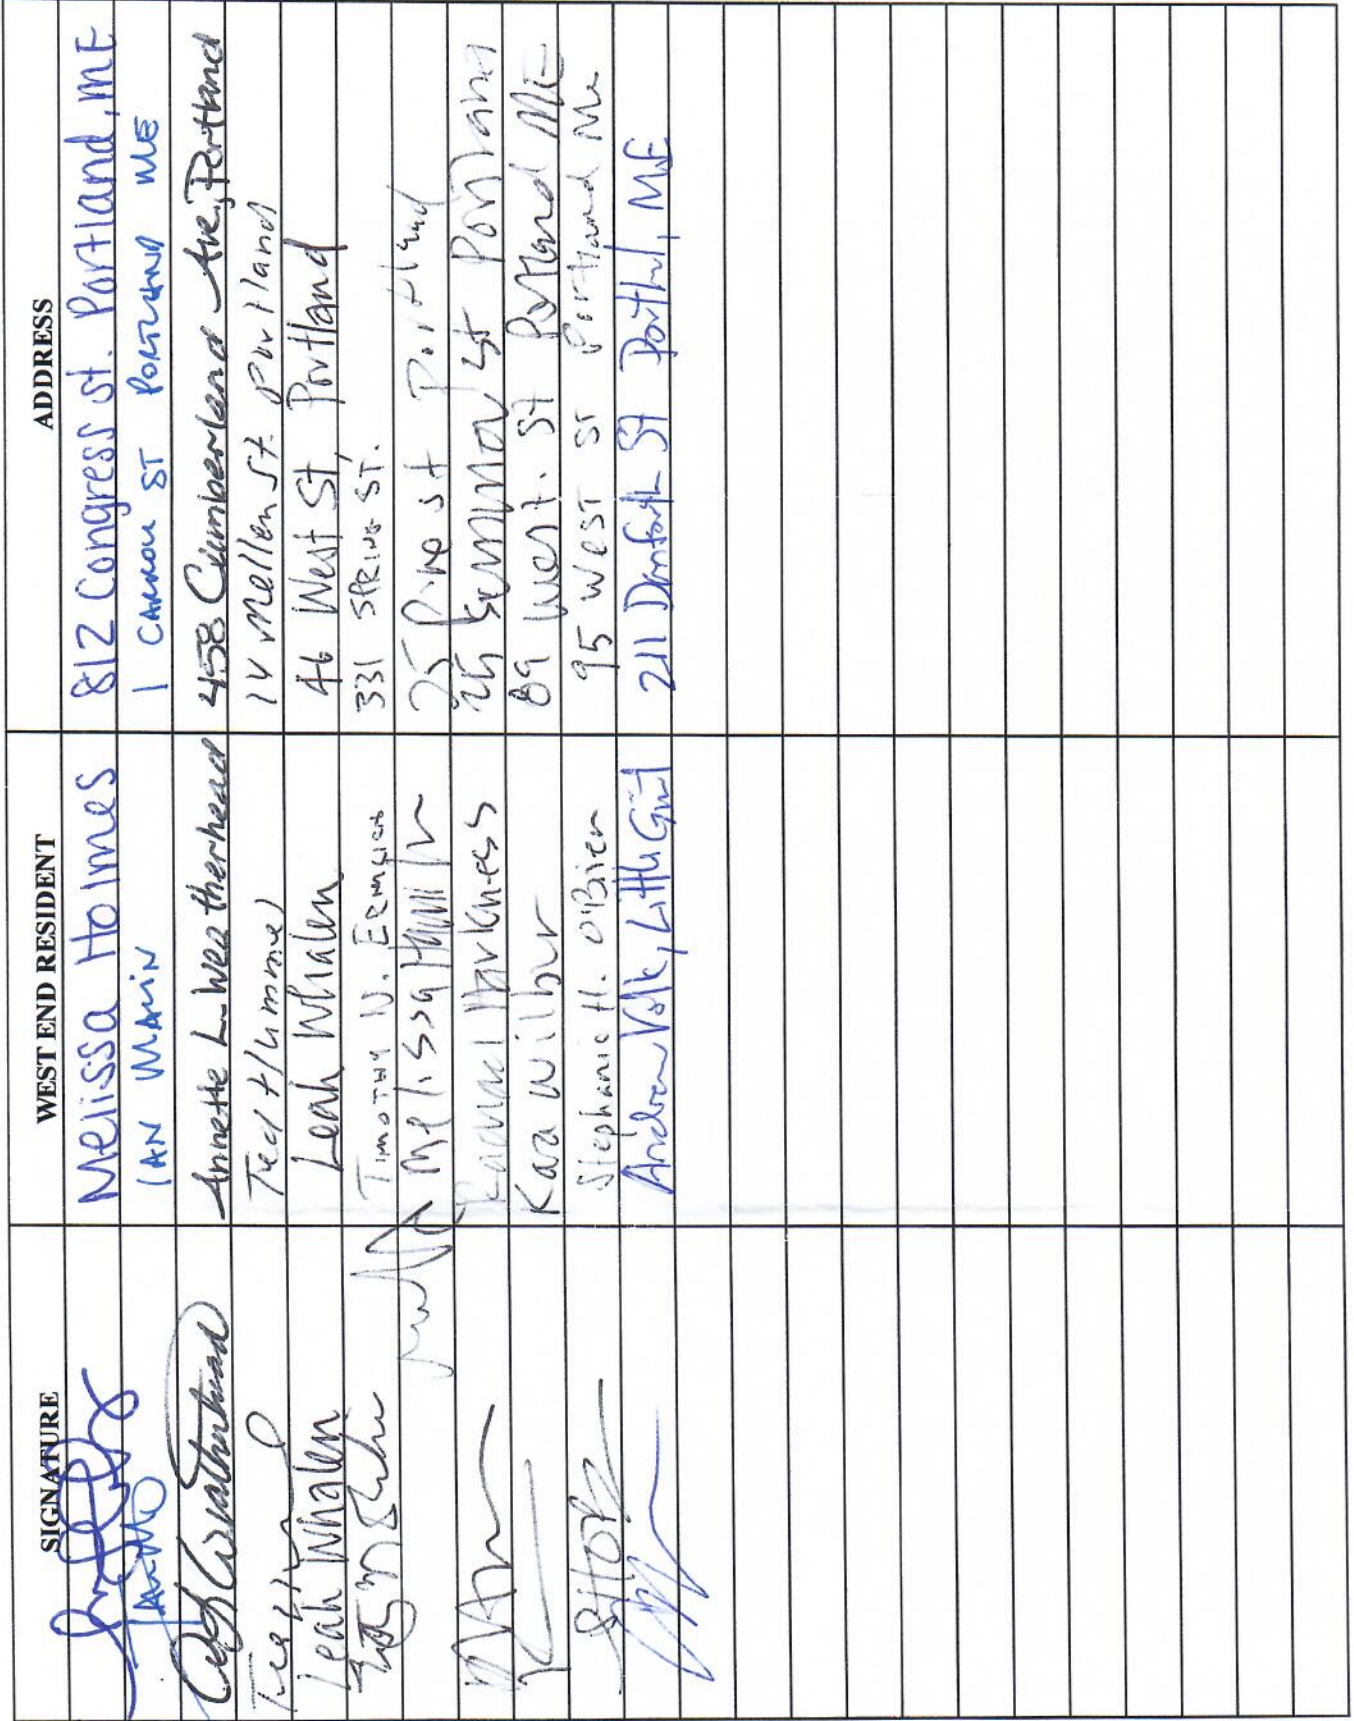 SIGNATURE WEST END RESIDENT ADDRESS
Melissa Holmes 812 Congress St. Portland, ME
IAN MALIN 1 CARROLL ST PORTLAND ME
Annette L. Weatherhead 458 Cumberland Ave, Portland
Ted Hummel 14 Mellen St. Portland
Leah Whalen Leah Whalen 46 West St, Portland
TIMOTHY N. 331 SPRING ST.
Melissa 25 Pine st Portland
Harkness 25 St Portland
Kara Wilbur 89 West. St Portland ME
Stephanie H. O'Brien 95 West ST Portland Me
Andrew Volk, Little Giant 211 Danforth St Portland, ME